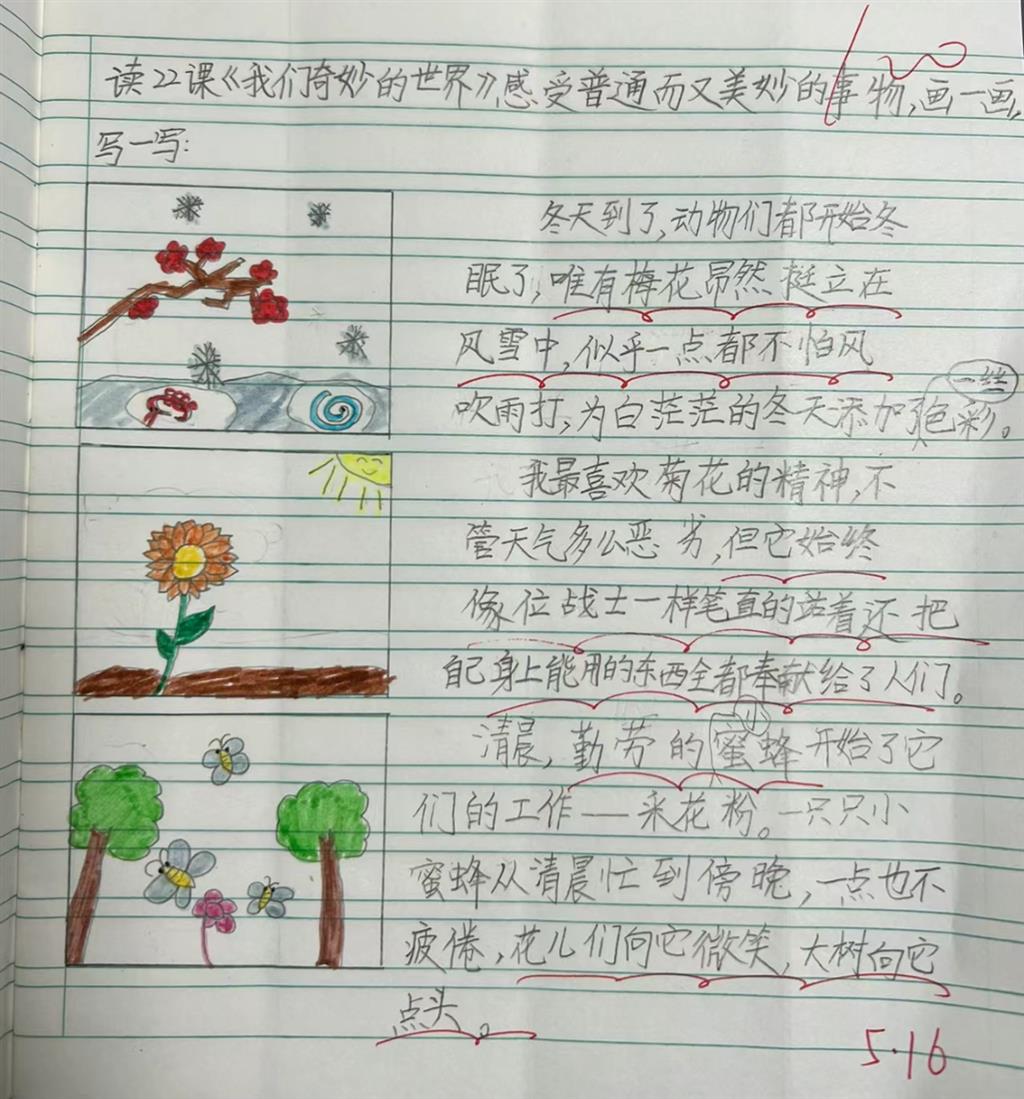 100
读22课《我们奇妙的世界》感受普通而又美妙的事物,画一画,
写一写:
冬天到了,动物们都开始冬
眠了,唯有梅花昂然挺立在
风雪中,似乎一点都不怕风
一丝
吹雨打,为白茫茫的冬天添加了色彩。
我最喜欢菊花的精神,不
管天气多么恶劣,但它始终
像位战士一样笔直的站着还把
自己身上能用的东西全都奉献给了人们。
小
清晨,勤劳的蜜蜂开始了它
们的工作——采花粉。一只只小
蜜蜂从清晨忙到傍晚,一点也不
疲倦,花儿们向它微笑,大树向它
点头。
5.16